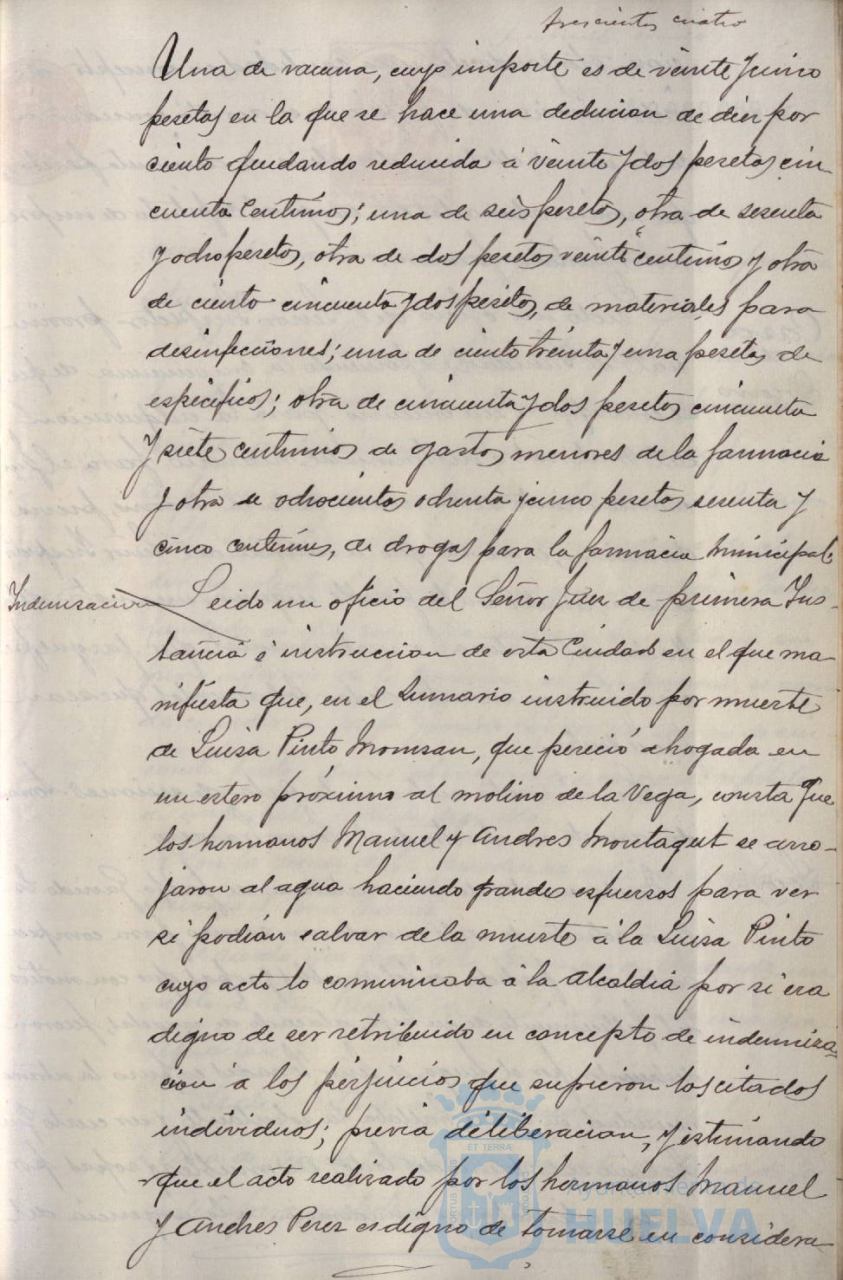 trescientos cuatro
Una de vacuna, cuyo importe es de veinte y cinco
pesetas en la que se hace una deducion de diez por
ciento quedando reducida á veinte y dos pesetas cin-
cuenta centimos; una de seis pesetas, otra de sesenta
y ocho pesetas, otra de dos pesetas veinte centimos y otra
de ciento cincuenta y dos pesetas, de materiales para
desinfecciones; una de ciento treinta y una pesetas de
especificos; otra de cincuenta y dos pesetas cincuenta
y siete centimos de gastos menores de la farmacia
y otra de ochocientas ochenta y cinco pesetas sesenta y
cinco centimos, de drogas para la farmacia municipal.
Indemnizacion
Leido un oficio del Señor Juez de primera Ins-
tancia é instruccion de esta Ciudad en el que ma-
nifiesta que, en el Sumario instruido por muerte
de Luisa Pinto Momsan, que pereció ahogada en
un estero próximo al molino de la Vega, consta que
los hermanos Manuel y Andres Montagut se arro-
jaron al agua haciendo grandes esfuersos para ver
si podian salvar de la muerte á la Luisa Pinto
cuyo acto lo comunicaba á la alcaldia por si era
digno de ser retribuido en concepto de indemniza-
cion á los perjuicios que sufrieron los citados
individuos; previa deliberacion, y estimando
que el acto realizado por los hermanos Manuel
y Andres Perez es digno de tomarse en considera-
ET TERRA
Ayuntamiento de
HUELVA